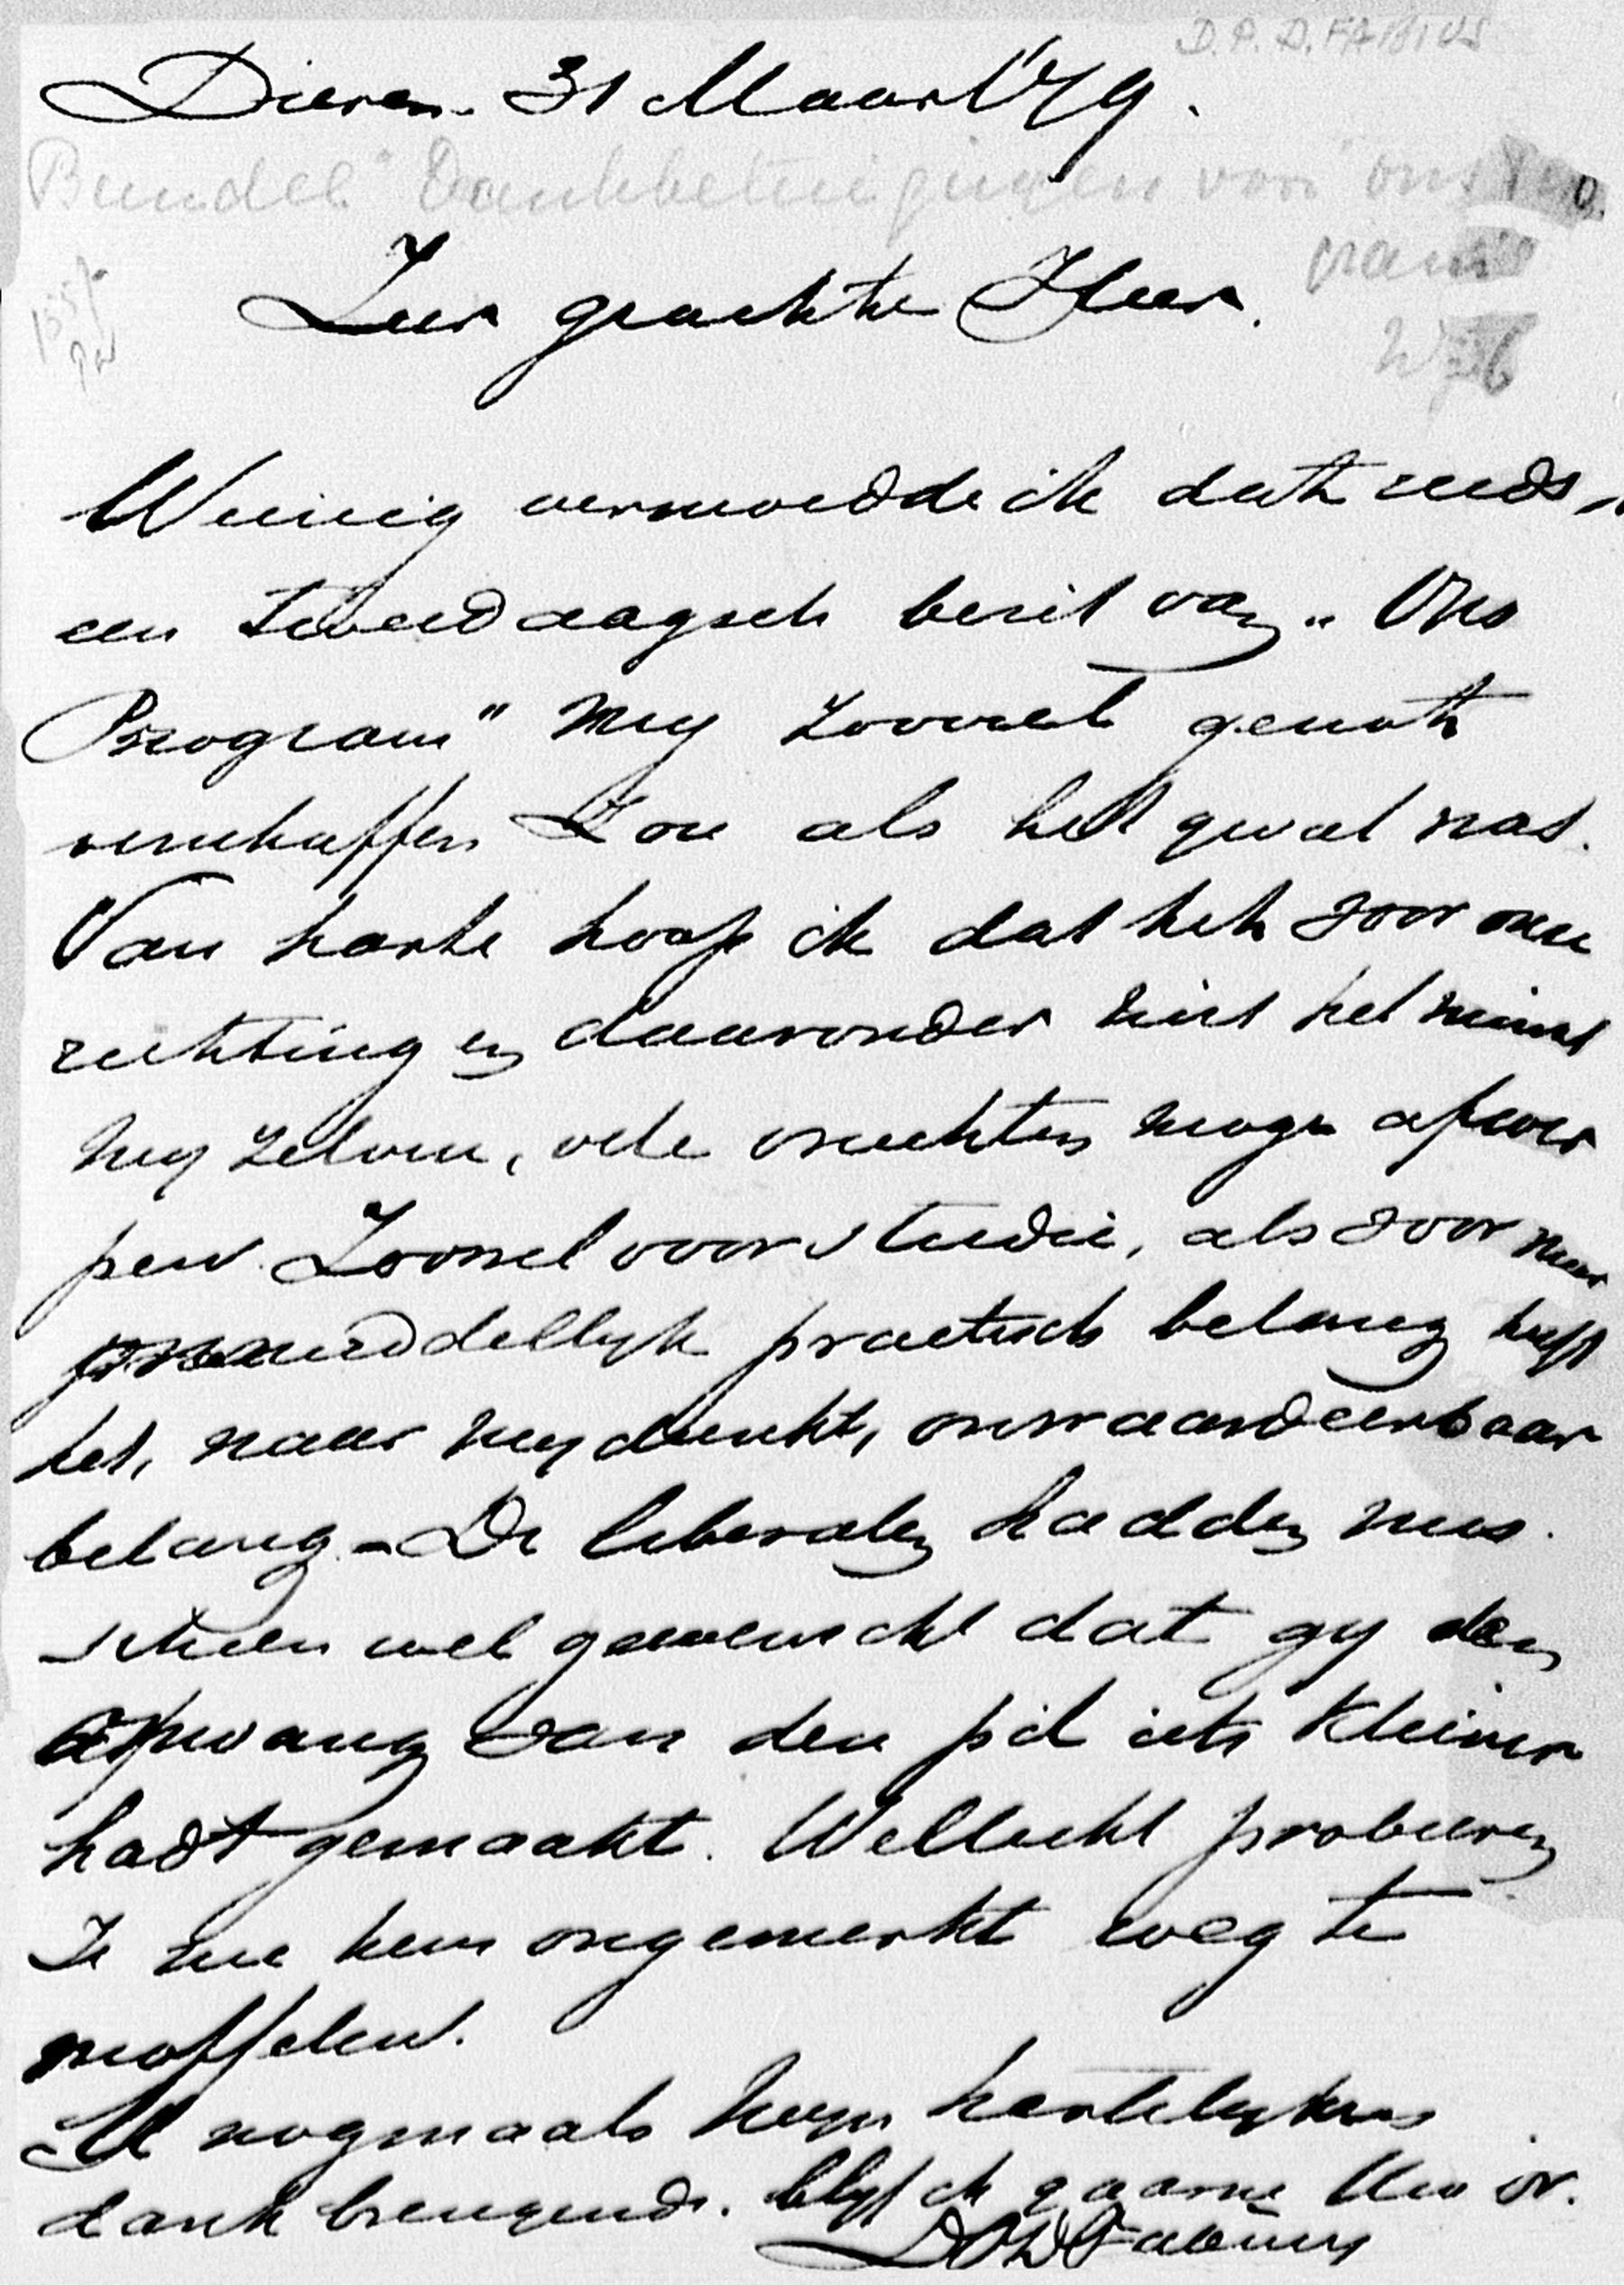 D.P.D. FABIUS
Dieren. 31 Maart '79.
Bundel "Dankbetuigingen voor ons
Zeer geachte Heer.
Weinig vermoedde ik dat reeds
een tweedaagsch bezit van "Ons
Program" my zooveel genot
verschaffen zou als het geval was.
Van harte hoop ik dat het voor onze
richting en daaronder niet het minst
my zelven, vele vruchten moge afwer
pen. Zoowel voor studie, als voor meer
onmiddellyk practisch belang heeft
het, naar my dunkt, onwaardeerbaar
belang. - De liberalen hadden mis
schien wel gewenscht dat gy den
omvang van den pil iets kleiner
hadt gemaakt. Wellicht probeeren
ze nu hem ongemerkt weg te
moffelen.
U nogmaals myn hartelyken
dank brengende. blyf ik gaarne Uw dr.
DPDFabius